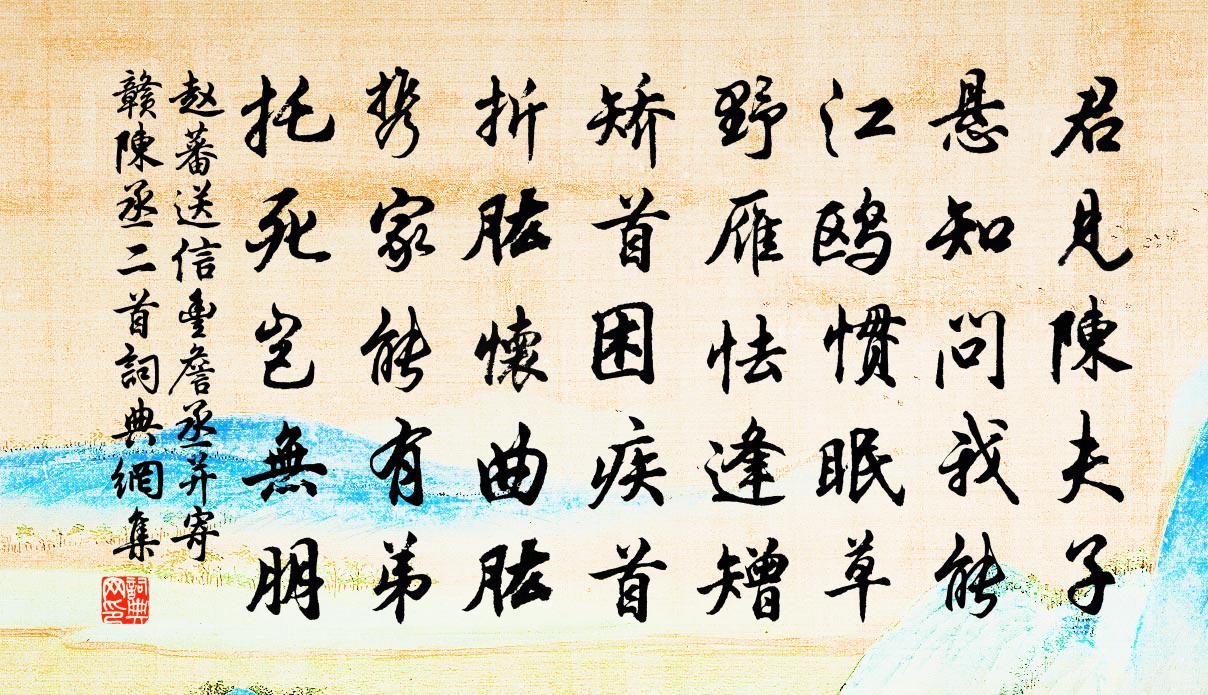 君見陳夫子
悬知问我能
江鸥惯眠草
野雁怯逢矰
矫首困疾首
折肱懷曲肱
携家能有弟
托死岂無朋
赵蕃送信豐詹丞并寄
贛陳丞二首詞典網集
詞典网印